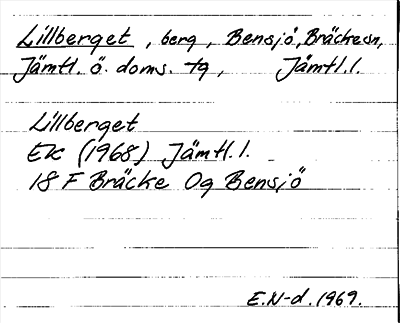 Lillberget, berg, Bensjö, Bräckesn,
Jämtl. ö. doms. tg, Jämtl.l.
Lillberget
EK (1968) Jämtl.l.
18 F Bräcke Og Bensjö
E.N-d. 1969.